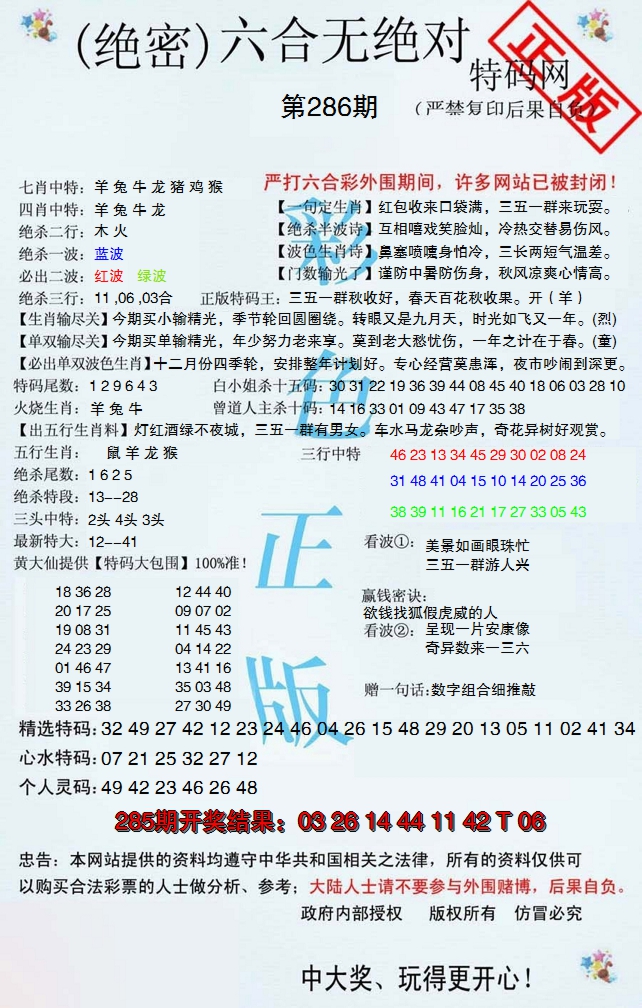 (绝密)六合无绝对
特码网
正版
第286期
(严禁复印后果自负)
七肖中特：羊 兔 牛 龙 猪 鸡 猴
严打六合彩外围期间，许多网站已被封闭！
四肖中特：羊 兔 牛 龙
【一句定生肖】红包收来口袋满，三五一群来玩耍。
绝杀二行：木 火
【绝杀半波诗】互相嘻戏笑脸灿，冷热交替易伤风。
绝杀一波：蓝波
【波色生肖诗】鼻塞喷嚏身怕冷，三长两短气温差。
必出二波：红波 绿波
【门数输光了】谨防中暑防伤身，秋风凉爽心情高。
绝杀三行：11 ,06 ,03合
正版特码王：三五一群秋收好，春天百花秋收果。开（ 羊 ）
【生肖输尽关】今期买小输精光，季节轮回圆圈绕。转眼又是九月天，时光如飞又一年。(烈)
【单双输尽关】今期买单输精光，年少努力老来享。莫到老大愁忧伤，一年之计在于春。(童)
【必出单双波色生肖】十二月份四季轮，安排整年计划好。专心经营莫患浑，夜市吵闹到深更。
特码尾数：1 2 9 6 4 3
白小姐杀十五码：30 31 22 19 36 39 44 08 45 40 18 06 03 28 10
火烧生肖：羊 兔 牛
曾道人主杀十码：14 16 33 01 09 43 47 17 35 38
【出五行生肖料】灯红酒绿不夜城，三五一群有男女。车水马龙杂吵声，奇花异树好观赏。
五行生肖： 鼠 羊 龙 猴
三行中特 46 23 13 34 45 29 30 02 08 24
绝杀尾数：1 6 2 5
31 48 41 04 15 10 14 20 25 36
绝杀特段：13--28
38 39 11 16 21 17 27 33 05 43
三头中特：2头 4头 3头
最新特大：12--41
看波①：美景如画眼珠忙
三五一群游人兴
黄大仙提供【特码大包围】100%准！
18 36 28 12 44 40
20 17 25 09 07 02
19 08 31 11 45 43
24 23 29 04 14 22
01 46 47 13 41 16
39 15 34 35 03 48
33 26 38 27 30 49
赢钱密诀：
欲钱找狐假虎威的人
看波②：呈现一片安康像
奇异数来一三六
赠一句话:数字组合细推敲
彩色正版
精选特码:32 49 27 42 12 23 24 46 04 26 15 48 29 20 13 05 11 02 41 34
心水特码:07 21 25 32 27 12
个人灵码:49 42 23 46 26 48
285期开奖结果：03 26 14 44 11 42 T 06
忠告：本网站提供的资料均遵守中华共和国相关之法律，所有的资料仅供可
以购买合法彩票的人士做分析、参考；大陆人士请不要参与外围赌博，后果自负。
政府内部授权 版权所有 仿冒必究
中大奖、玩得更开心！